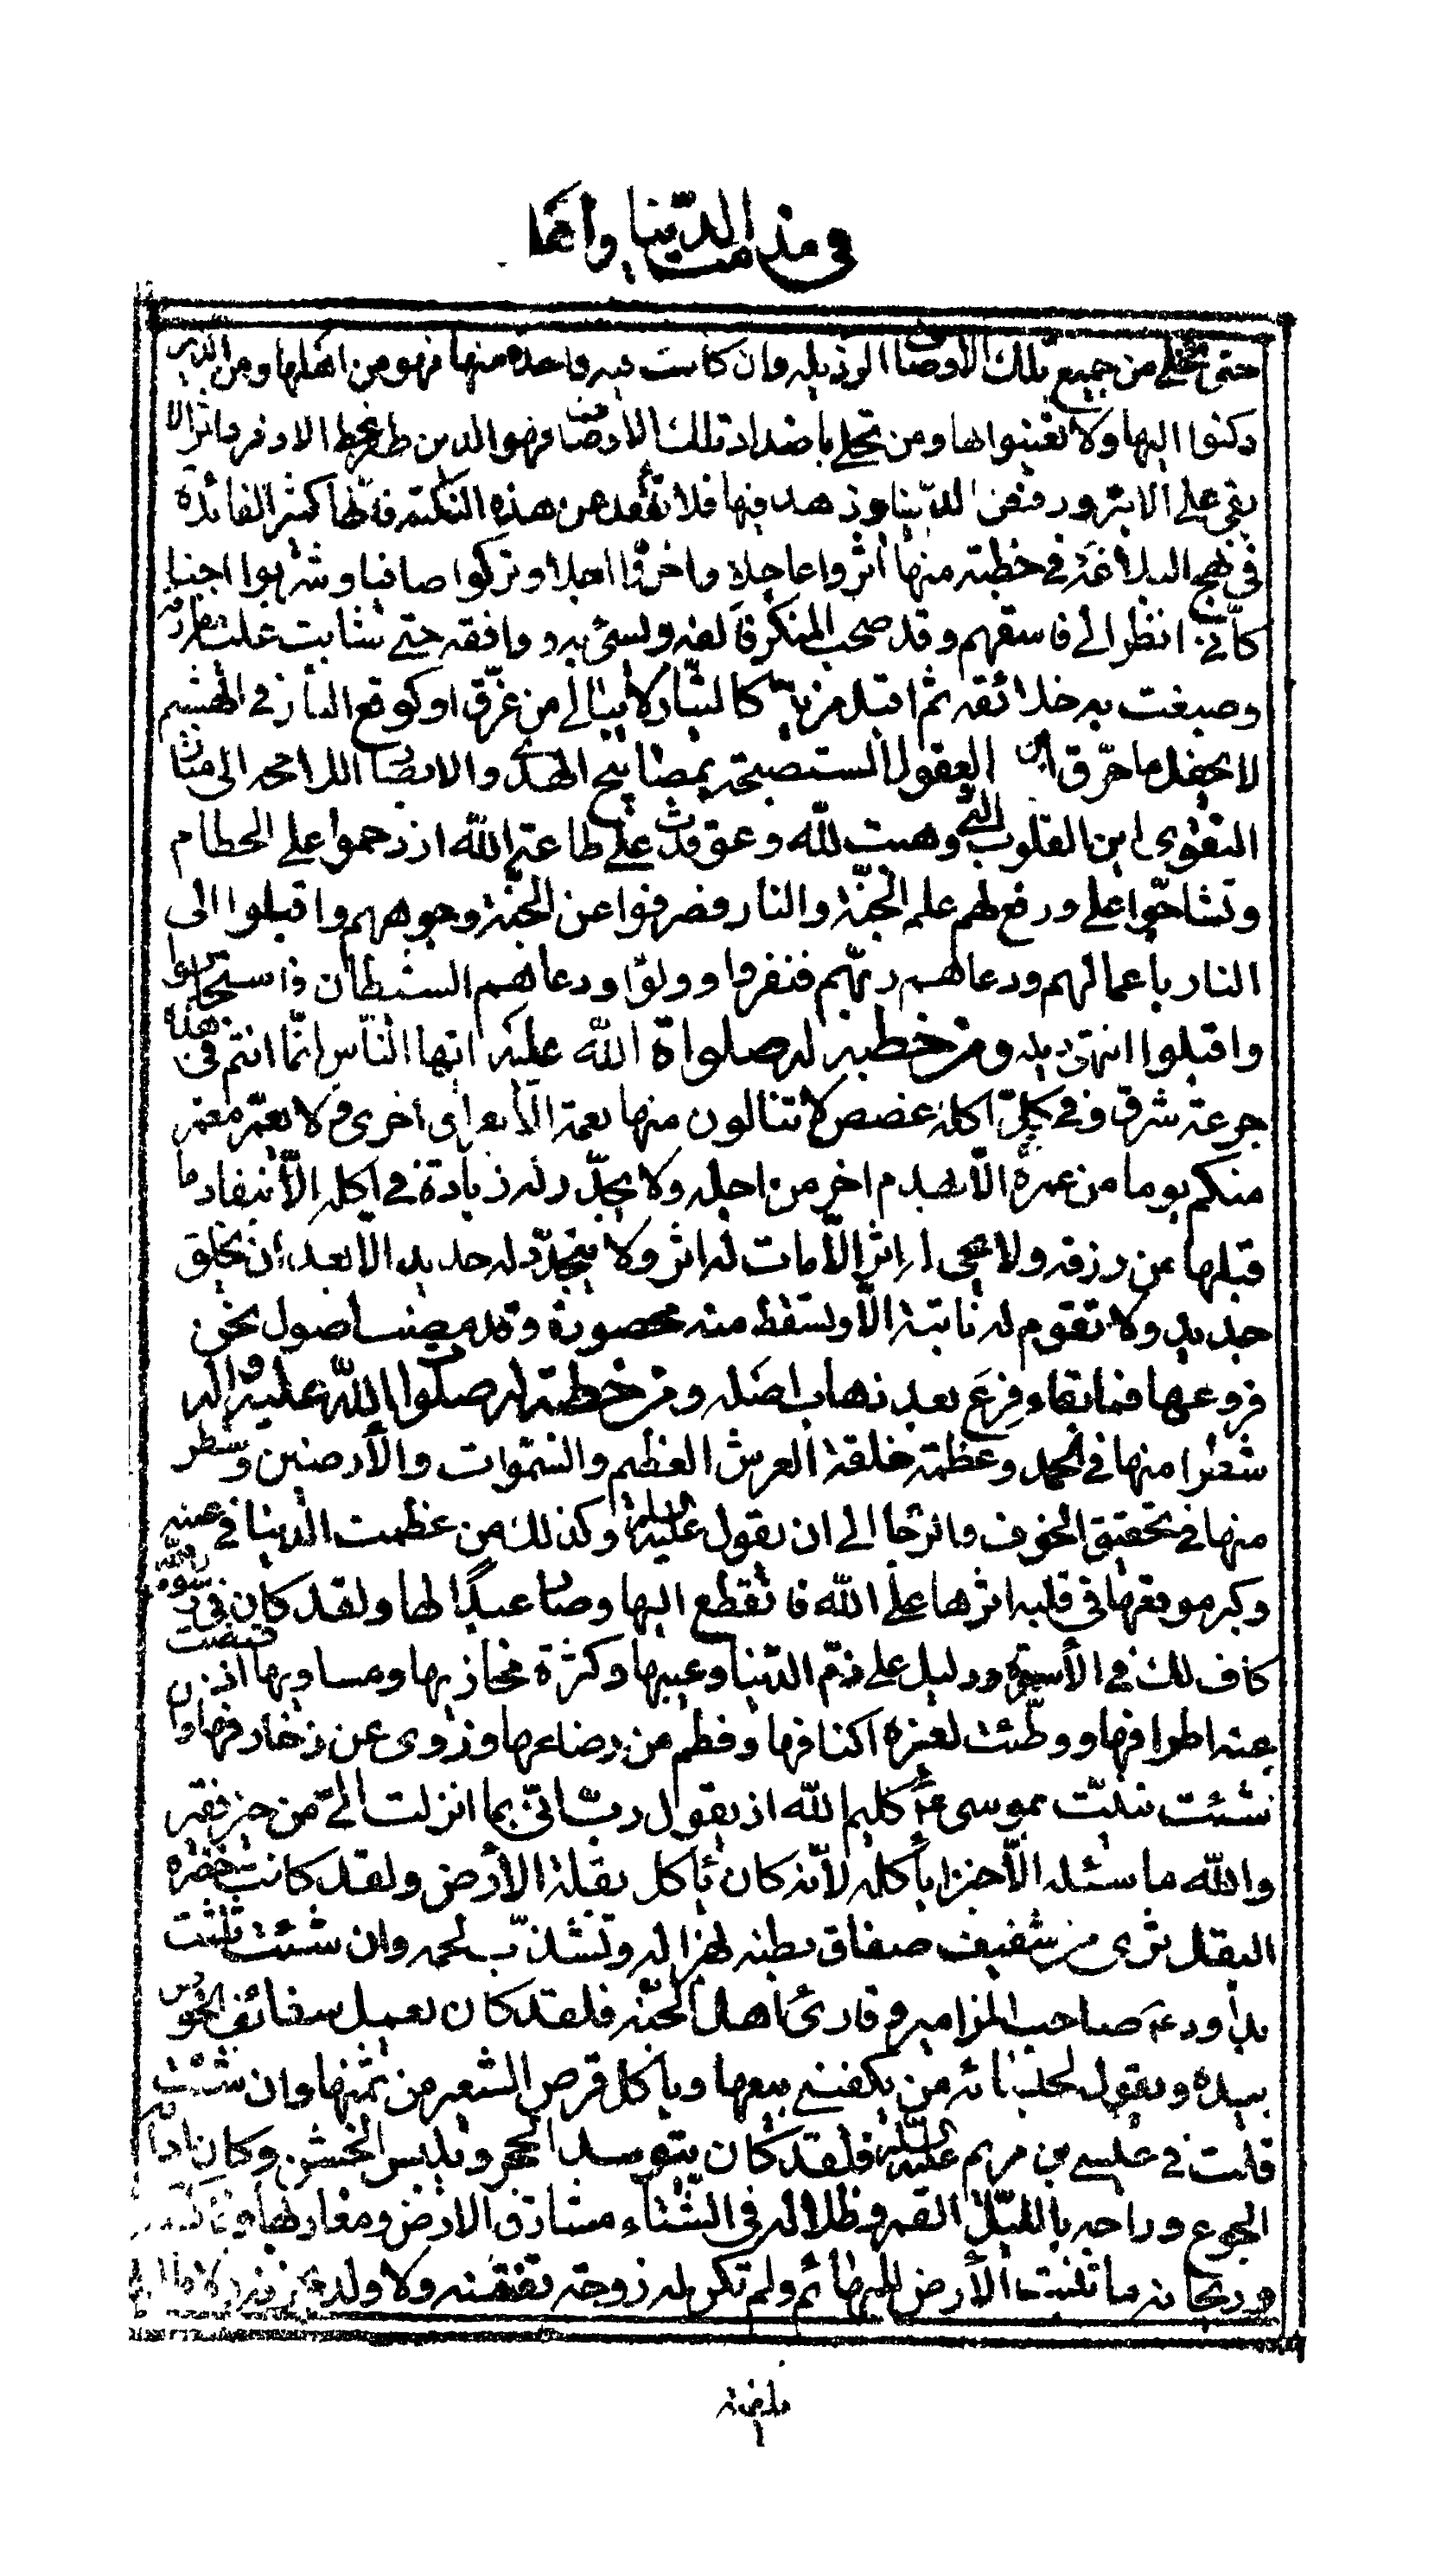 في مذمت الدّنيا وانّها
حتى تخلى من جميع تلك الاوصاف الرذيله وان كانت فيه واحدة منها فهو من اهلها ومن الذين
ركنوا اليها ولا تغبنوا لها ومن تحلى باضداد تلك الاوصاف فهو الذي من بالحظ الاوفر واثر الا
بقى على الابتر ورفض الدّنيا وزهد فيها فلا تغفل عن هذه النكتة فانّها كثير الفائدة
في نهج البلاغة في خطبة منها اثروا عاجلا واخّروا اجلا وتركوا صافيا وشربوا اجنا
كانّي انظر الى فاسقهم وقد صحب المنكر فالفه وبسئ به ووافقه حتى شابت عليه مفارقه
وصبغت به خلائقه ثم اقبل مزبدا كالتيار لا يبالى من غرّق او كوقع النار في الهشيم
لا يحفل ما حرّق اين العقول المستصبحة بمصابيح الهدى والابصار اللامحه الى منار
التقوى اين القلوب التي وهبت لله وعوقدت على طاعة الله ازدحموا على الحطام
وتشاحّوا على ورفع لهم علم الجنّة والنار فصرفوا عن الجنّة وجوههم واقبلوا الى
النار باعمالهم ودعاهم ربّهم فنفروا وولّوا ودعاهم الشيطان فاستجابوا
واقبلوا انتهى ومن خطبة له صلوات الله عليه ايها النّاس انّما انتم في هذه
جرعة شرق وفي كلّ اكلة غصص لا تنالون منها نعمة الّا بفراق اخرى ولا يعمّر معمر
منكم يوما من عمره الّا بهدم اخر من اجله ولا يجدّد له زيادة في اكله الّا بنفاد ما
قبلها من رزقه ولا يحيى له اثر الّا مات له اثر ولا يتجدّد له جديد الا بعد ان يخلق
جديد ولا تقوم له نابتة الّا وتسقط منه محصودة وقد مضت اصول نحن
فروعها فما بقاء فرع بعد ذهاب اصله ومن خطبة له صلوات الله عليه واله
شطرا منها في الحمد وعظمة خلقة العرش العظيم والسّموات والأرضين وشطر
منها في تحقيق الخوف والرجا الى ان يقول عليه السلام وكذلك من عظمت الدنيا في عينه
وكبر موقعها في قلبه اثرها على الله فانقطع اليها وصار عبدا لها ولقد كان في رسول الله
كاف لك في الأسوة ودليل على ذمّ الدّنيا وعيبها وكثرة مخازيها ومساويها اذ قبضت
عنه اطرافها ووطّئت لغيره اكنافها وفطم من رضاعها وزوى عن زخارفها وان
شئت ثنيّت بموسى كليم الله اذ يقول ربّ انّي بما انزلت الىّ من خير فقير
والله ما سئله الّا خبزا يأكله لأنّه كان يأكل بقلة الأرض ولقد كانت خضرة
البقل ترى من شفيف صفاق بطنه لهزاله وتشذّب لحمه وان شئت ثلّثت
بداود صاحب المزامير وقارئ اهل الجنّه فلقد كان يعمل سفائف الخوص
بيده ويقول لجلسائه من يكفني بيعها ويأكل قرص الشعير من ثمنها وان شئت
قلت في عيسى بن مريم عليه السلام فلقد كان يتوسد الحجر ويلبس الخشن وكان ادامه
الجوع وسراجه بالليل القمر وظلاله في الشّتاء مشارق الارض ومغاربها وفاكهته
وريحانه ما تنبت الأرض للبهائم ولم تكن له زوجة تفتنه ولا ولد يحزنه ولا مال